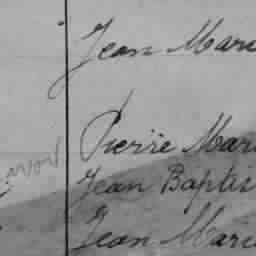 Jean Mari
Pierre Mari
Jean Baptis
Jean Marie